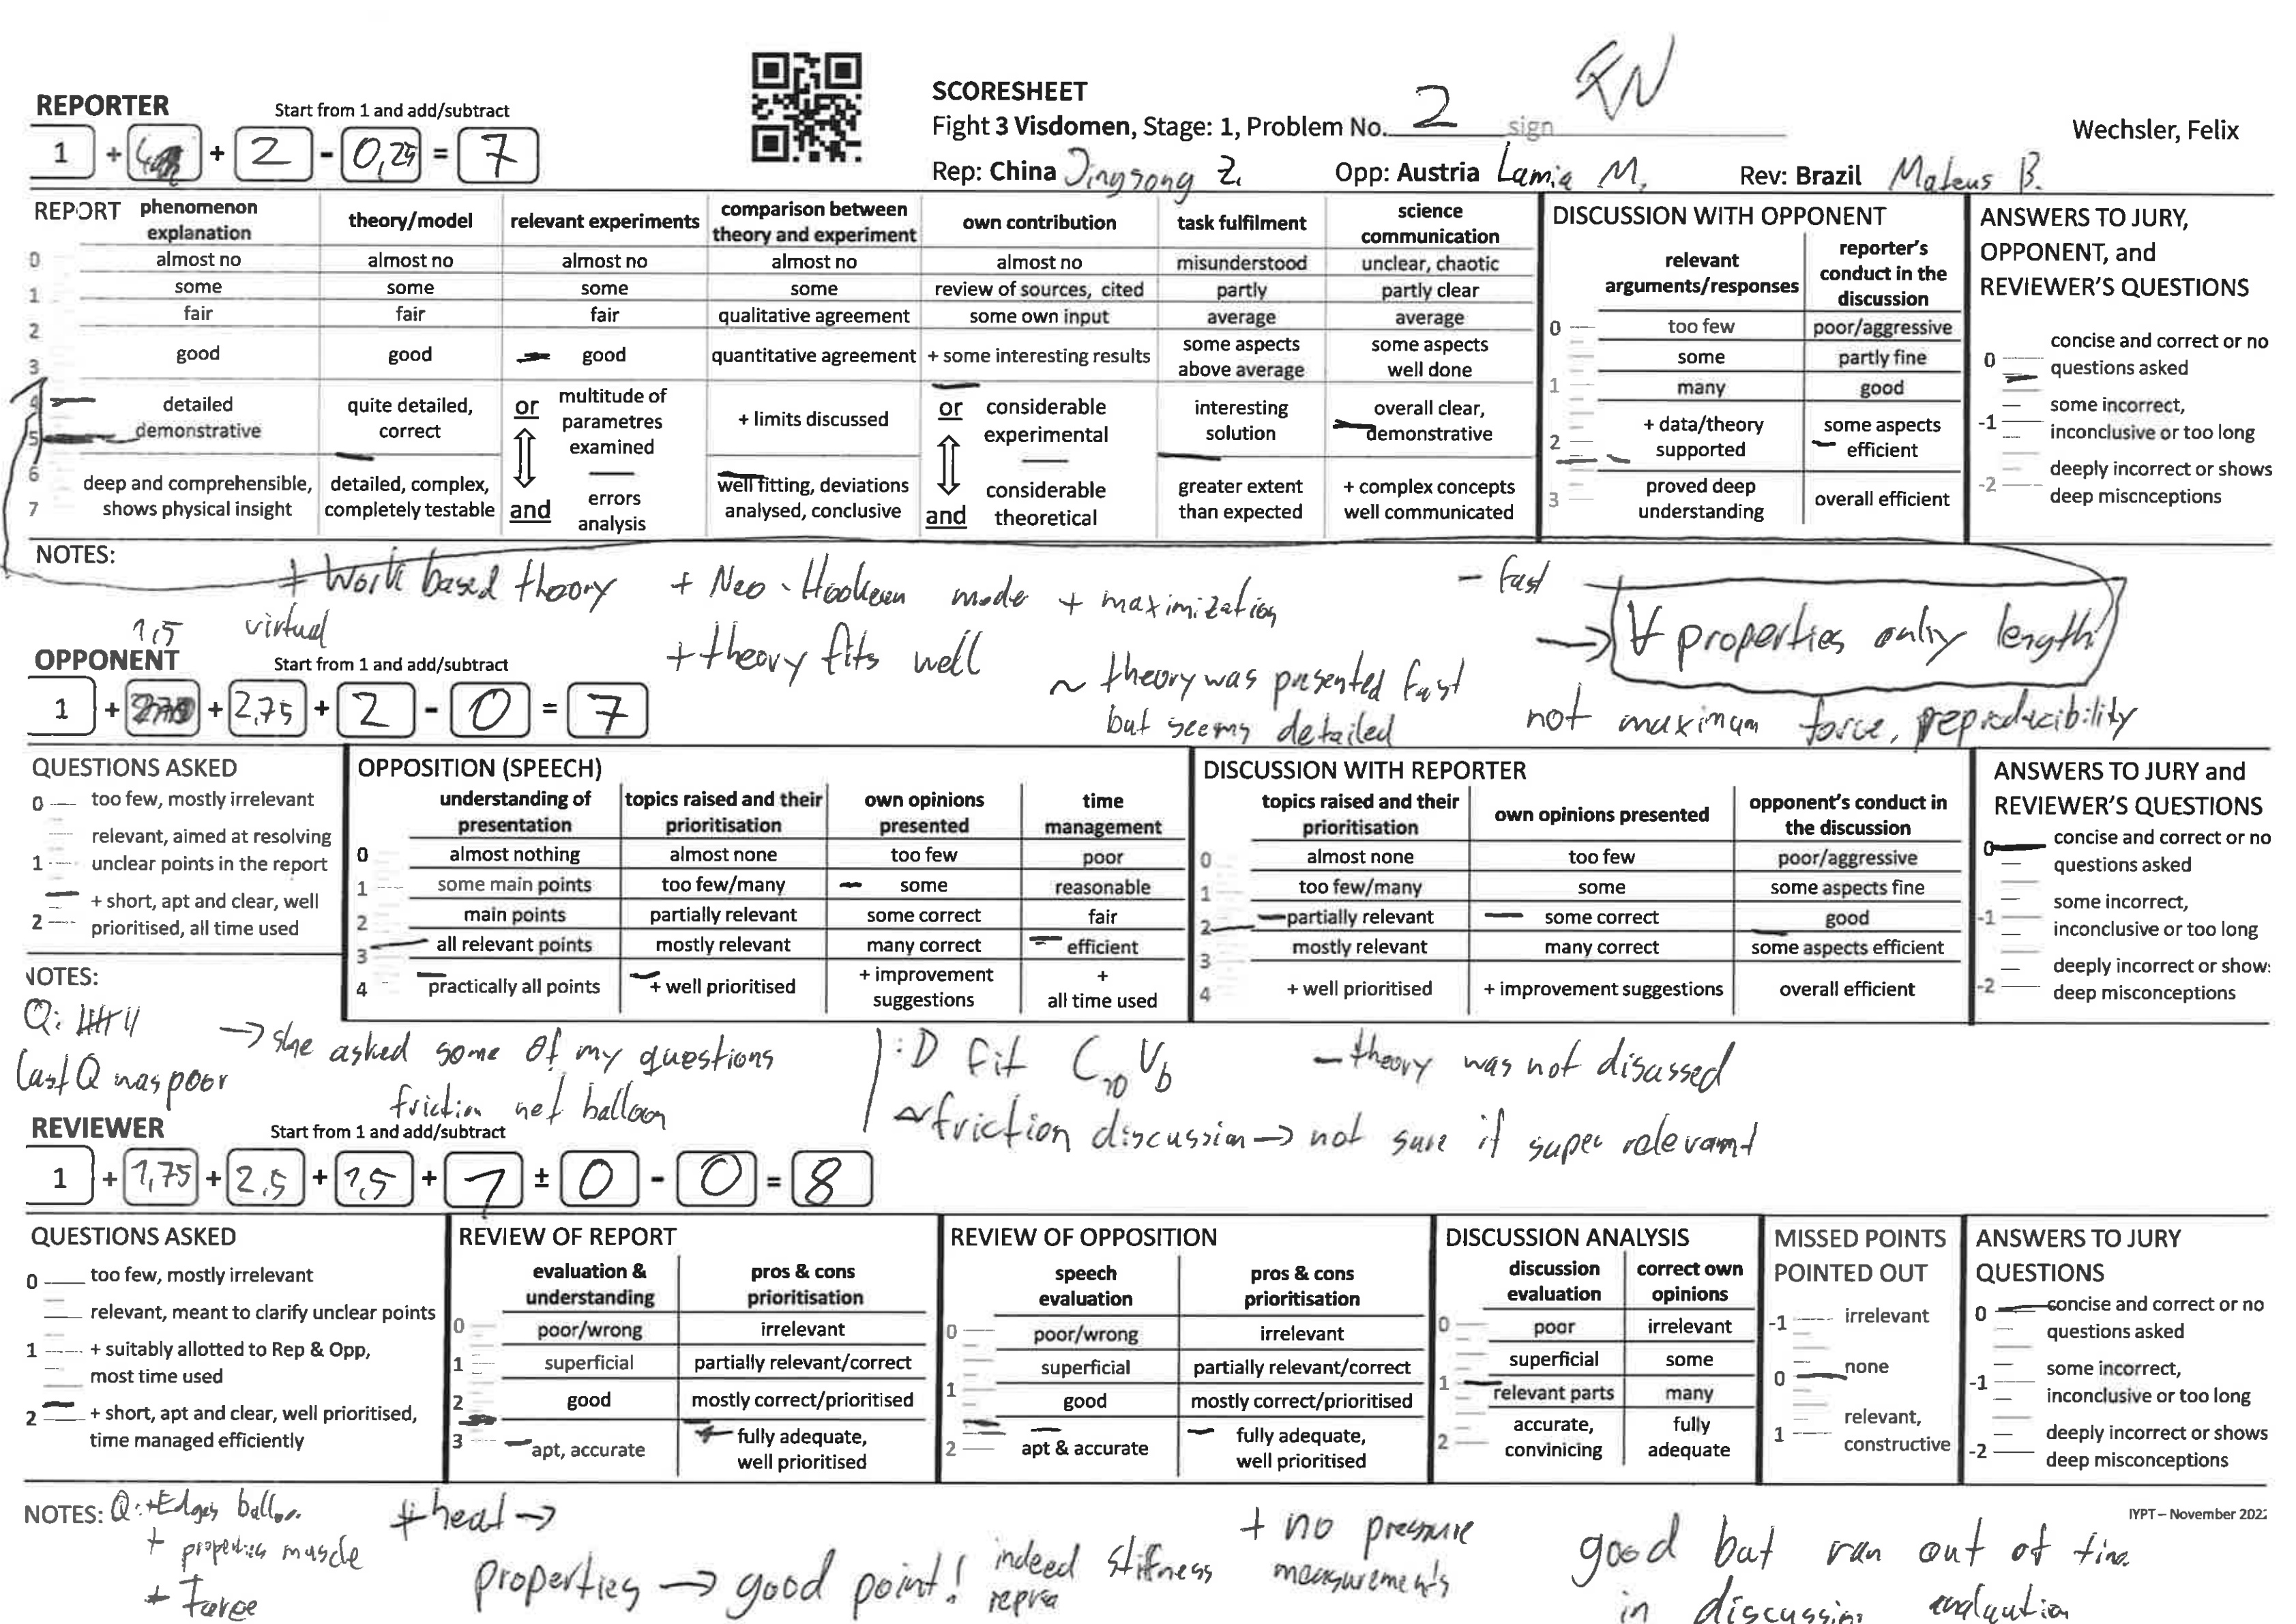 REPORTER Start from 1 and add/subtract
1 + + 2 - 0,25 = 7
SCORESHEET
Fight 3 Visdomen, Stage: 1, Problem No. 2 sign
Wechsler, Felix
Rep: China Jingsong Z. Opp: Austria Lamia M. Rev: Brazil Mateus B.
REPORT phenomenon explanation theory/model relevant experiments comparison between theory and experiment own contribution task fulfilment science communication
0 almost no almost no almost no almost no almost no misunderstood unclear, chaotic
1 some some some some review of sources, cited partly partly clear
2 fair fair fair qualitative agreement some own input average average
3 good good good quantitative agreement + some interesting results some aspects above average some aspects well done
4 5 detailed demonstrative quite detailed, correct or multitude of parametres examined + limits discussed or considerable experimental interesting solution overall clear, demonstrative
6 7 deep and comprehensible, shows physical insight detailed, complex, completely testable and errors analysis well fitting, deviations analysed, conclusive and considerable theoretical greater extent than expected + complex concepts well communicated
DISCUSSION WITH OPPONENT
relevant arguments/responses reporter's conduct in the discussion
0 too few poor/aggressive
some partly fine
1 many good
2 + data/theory supported some aspects efficient
3 proved deep understanding overall efficient
ANSWERS TO JURY, OPPONENT, and REVIEWER'S QUESTIONS
0 concise and correct or no questions asked
-1 some incorrect, inconclusive or too long
-2 deeply incorrect or shows deep miscnceptions
NOTES:
+ Work based theory + Neo-Hookean mode + maximization - fast
virtual + theory fits well
→ ∀ properties only length!
~ theory was presented fast
but seems detailed
not maximum force, reproducibility
1,5
OPPONENT Start from 1 and add/subtract
1 + + 2,75 + 2 - 0 = 7
QUESTIONS ASKED
0 too few, mostly irrelevant
1 relevant, aimed at resolving unclear points in the report
2 + short, apt and clear, well prioritised, all time used
OPPOSITION (SPEECH)
understanding of presentation topics raised and their prioritisation own opinions presented time management
0 almost nothing almost none too few poor
1 some main points too few/many some reasonable
2 main points partially relevant some correct fair
3 all relevant points mostly relevant many correct efficient
4 practically all points + well prioritised + improvement suggestions + all time used
DISCUSSION WITH REPORTER
topics raised and their prioritisation own opinions presented opponent's conduct in the discussion
0 almost none too few poor/aggressive
1 too few/many some some aspects fine
2 partially relevant some correct good
3 mostly relevant many correct some aspects efficient
4 + well prioritised + improvement suggestions overall efficient
ANSWERS TO JURY and REVIEWER'S QUESTIONS
0 concise and correct or no questions asked
-1 some incorrect, inconclusive or too long
-2 deeply incorrect or show: deep misconceptions
NOTES:
Q:
Last Q was poor
→ she asked some of my questions
friction net balloon
:D Fit C10 Vb
- theory was not discussed
~ friction discussion → not sure if super relevant
REVIEWER Start from 1 and add/subtract
1 + 1,75 + 2,5 + 1,5 + 1 ± 0 - 0 = 8
QUESTIONS ASKED
0 too few, mostly irrelevant
relevant, meant to clarify unclear points
1 + suitably allotted to Rep & Opp, most time used
2 + short, apt and clear, well prioritised, time managed efficiently
REVIEW OF REPORT
evaluation & understanding pros & cons prioritisation
0 poor/wrong irrelevant
1 superficial partially relevant/correct
2 good mostly correct/prioritised
3 apt, accurate fully adequate, well prioritised
REVIEW OF OPPOSITION
speech evaluation pros & cons prioritisation
0 poor/wrong irrelevant
superficial partially relevant/correct
1 good mostly correct/prioritised
2 apt & accurate fully adequate, well prioritised
DISCUSSION ANALYSIS
discussion evaluation correct own opinions
0 poor irrelevant
superficial some
1 relevant parts many
2 accurate, convinicing fully adequate
MISSED POINTS POINTED OUT
-1 irrelevant
0 none
1 relevant, constructive
ANSWERS TO JURY QUESTIONS
0 concise and correct or no questions asked
-1 some incorrect, inconclusive or too long
-2 deeply incorrect or shows deep misconceptions
IYPT – November 202
NOTES: Q: + Edges
+ properties muscle
+ Force
+ heat →
properties → good point! indeed stiffness
+ no pressure measurements
good but ran out of time
in discussion evaluation